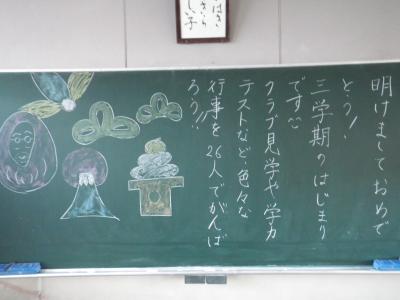 明けましておめで
とう!
三学期のはじまり
です
クラブ見学や学力
テストなど、色々な
行事を26人でがんば
ろう!!